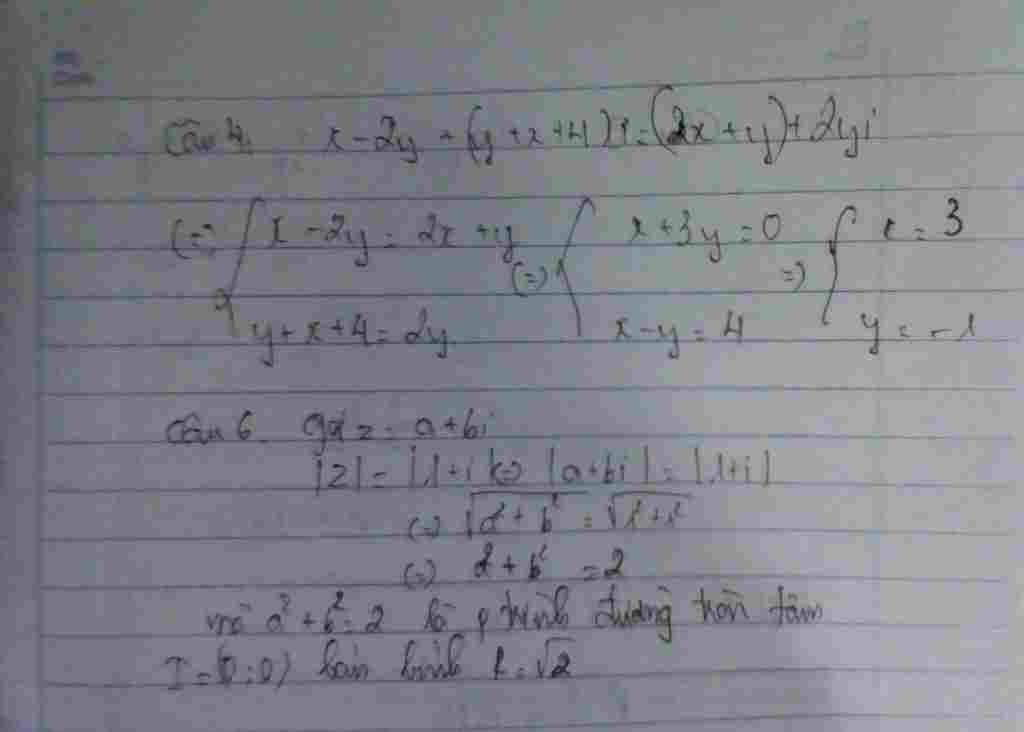 Câu 4. x - 2y + (y + x + 4)i = (2x + y) + 2yi
(=) { x - 2y = 2x + y (=) { x + 3y = 0 =) { x = 3
y + x + 4 = 2y x - y = 4 y = -1
Câu 6 gọi z = a + bi
|z| = |1 + i| (=) |a + bi| = |1 + i|
(=) √(a² + b²) = √(1² + 1²)
(=) a² + b² = 2
mà a² + b² = 2 là p trình đường tròn tâm
I = (0; 0) bán kính R = √2